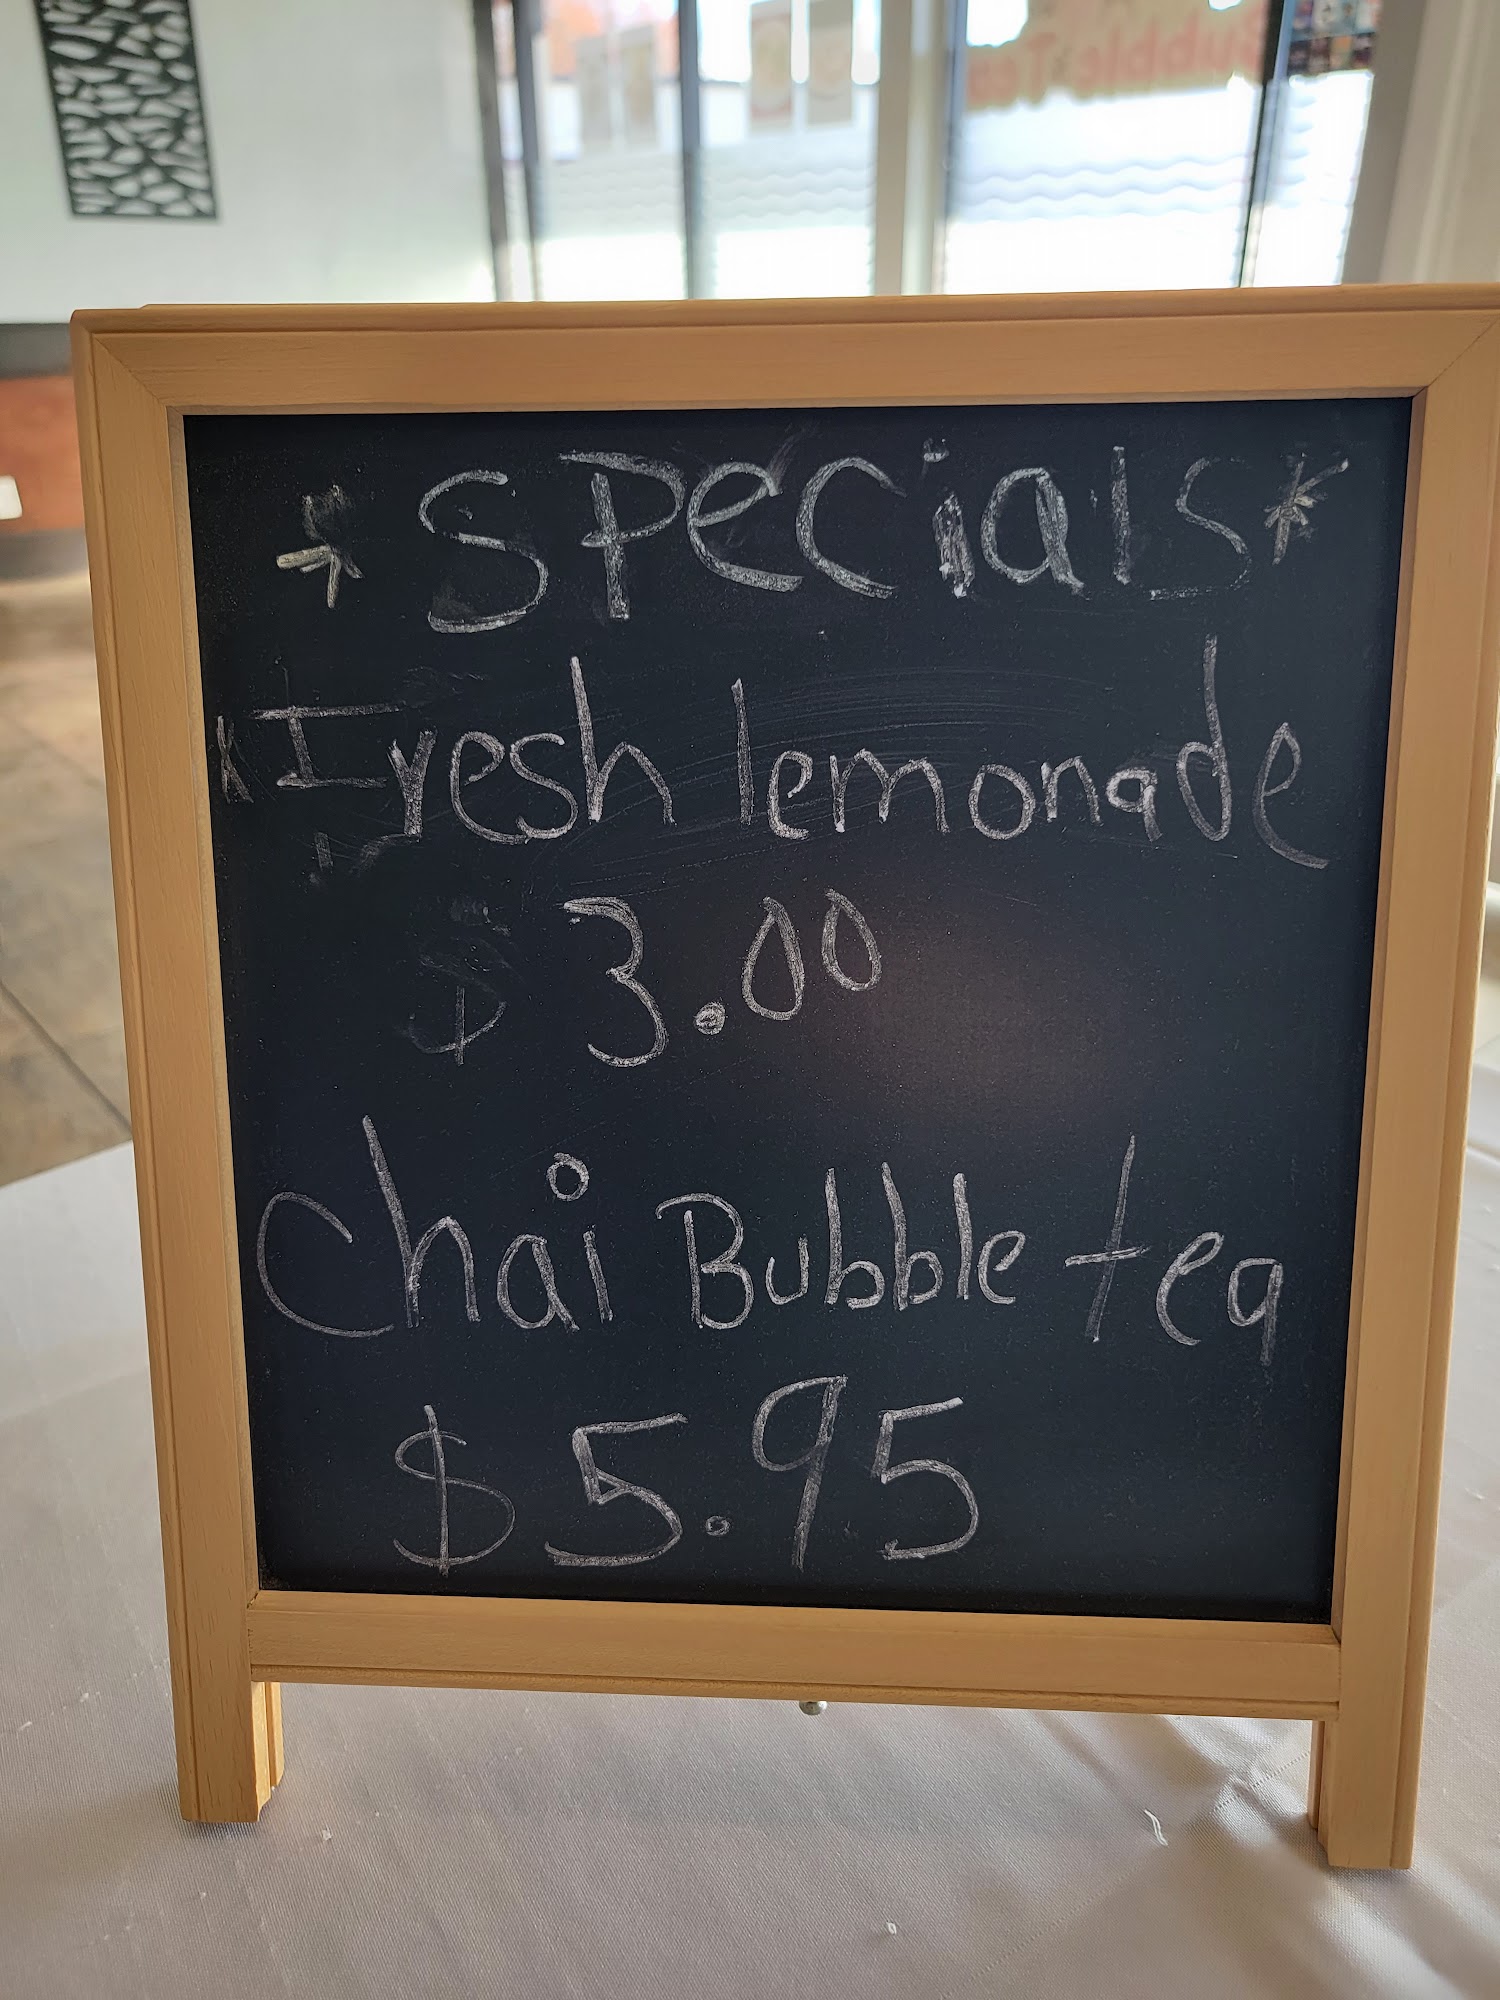 Bubble Tea
*Specials*
*Fresh lemonade
$3.00
Chai Bubble tea
$5.95